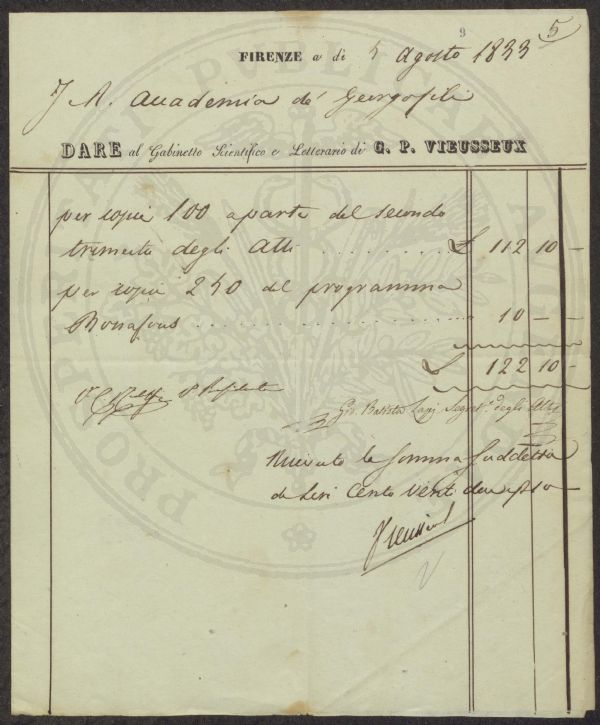 9
5
FIRENZE a dì 5 Agosto 1833
I. R. Accademia de' Georgofili
DARE al Gabinetto Scientifico e Letterario di G. P. VIEUSSEUX
per copie 100 a parte del secondo
trimestre degli Atti . . . . . . . . £ 112 10 –
per copie 250 del programma
Bonafous . . . . . . . . . . . . . . . 10 – –
£ 122 10 –
Gio. Batista Lapi Segret.º degli Atti
Ricevuto la Somma Suddetta
di Lire Cento Venti due e 10
Vieusseux